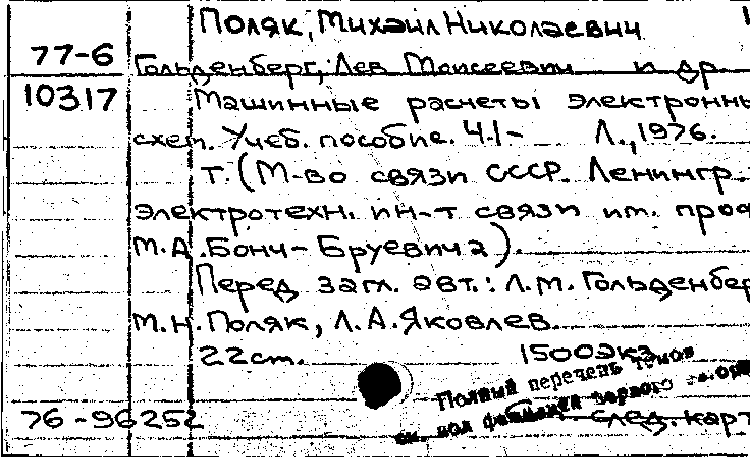 Поляк, Михаил Николаевич
77-6 Гольденберг, Лев Моисеевич и др.
10317 Машинные расчеты электронны
схем. Учеб. пособие. Ч.1- Л., 1976.
т. (М-во связи СССР. Ленингр.
электротехн. ин-т связи им. проф
М.А. Бонч-Бруевича).
Перед загл. авт.: Л.М. Гольденбер
М.Н. Поляк, Л.А. Яковлев.
22 см. 1500экз
Полный перечень томов
см. под фамилией первого автора
76-96252 след. карт